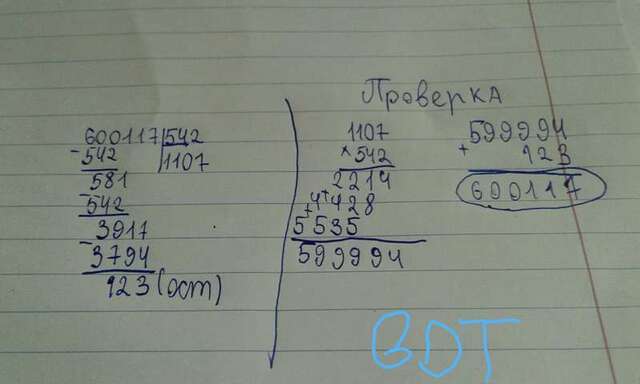 600117 542
- 542 1107
581
- 542
3917
- 3794
123 (ост)
Проверка
1107
× 542
2214
+ 4428
+ 5535
599994
599994
+ 123
600117
BDT